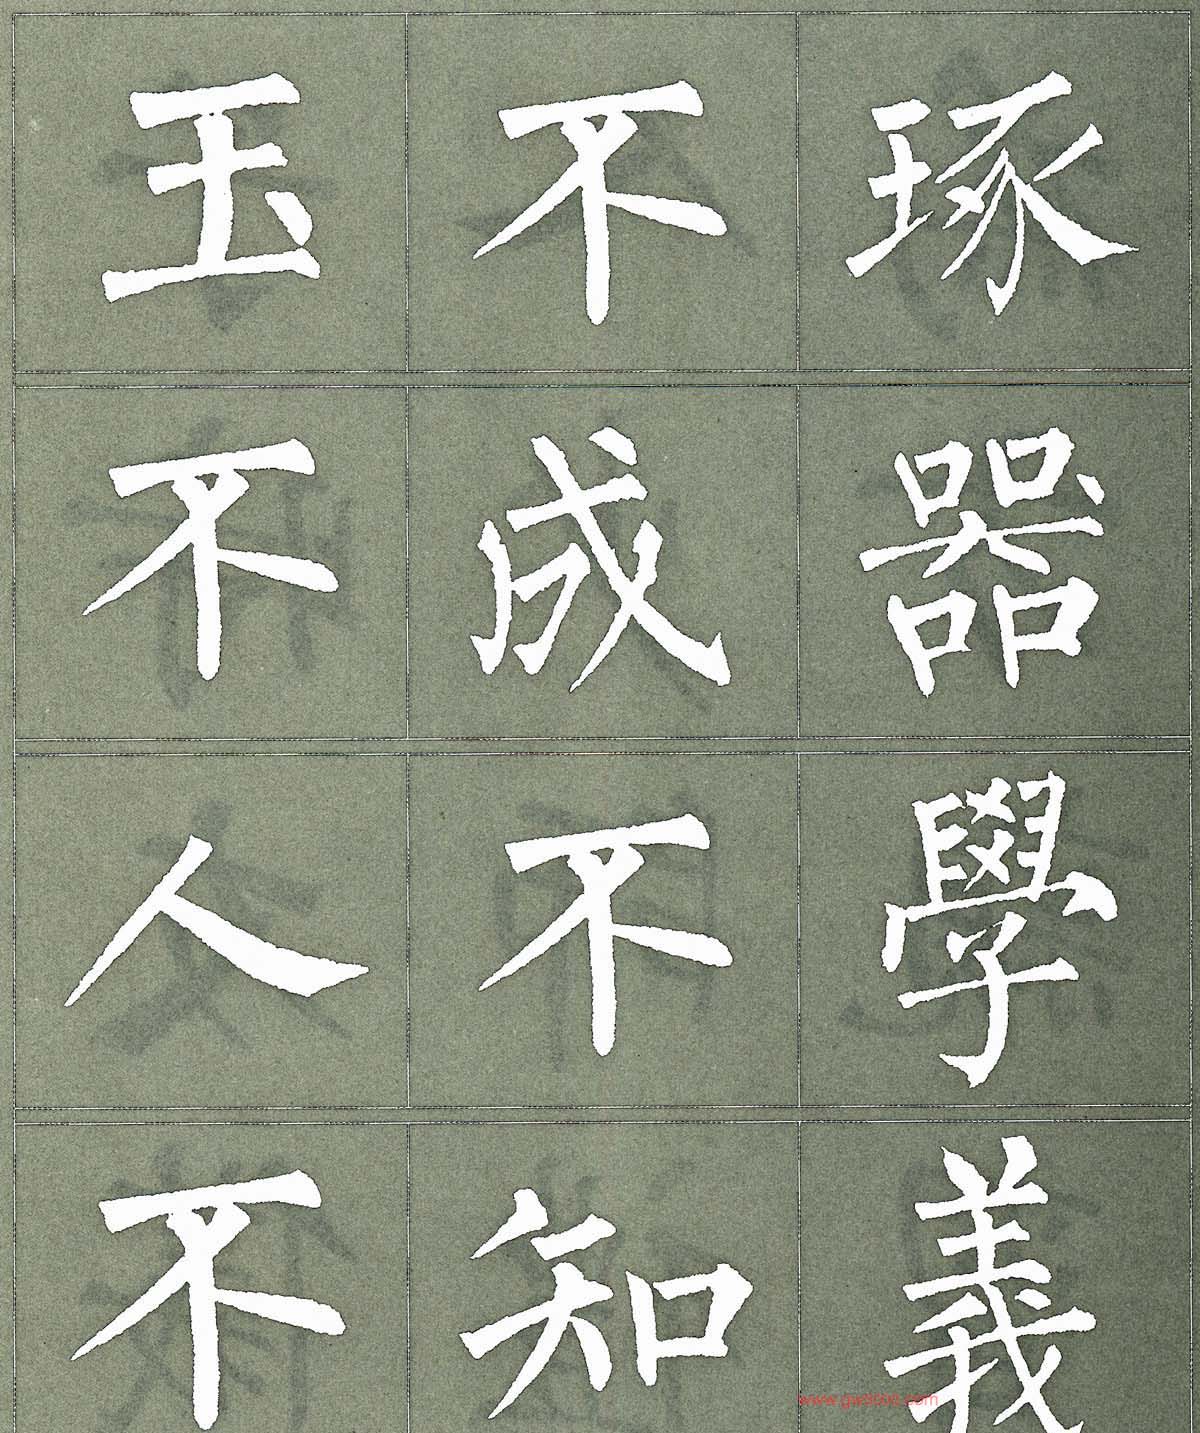 玉不琢
不成器
人不學
不知義
www.gw8000.com